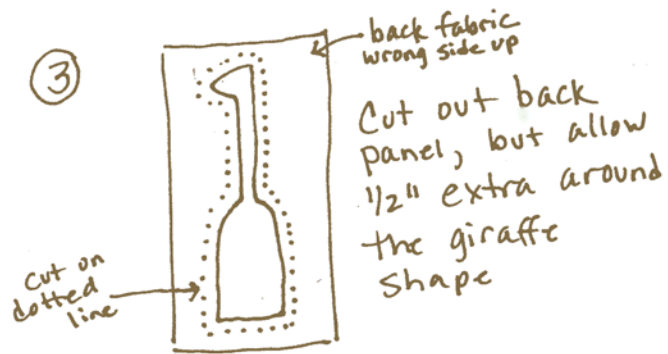 3
back fabric
wrong side up
Cut out back
panel, but allow
1/2" extra around
the giraffe
shape
cut on
dotted
line